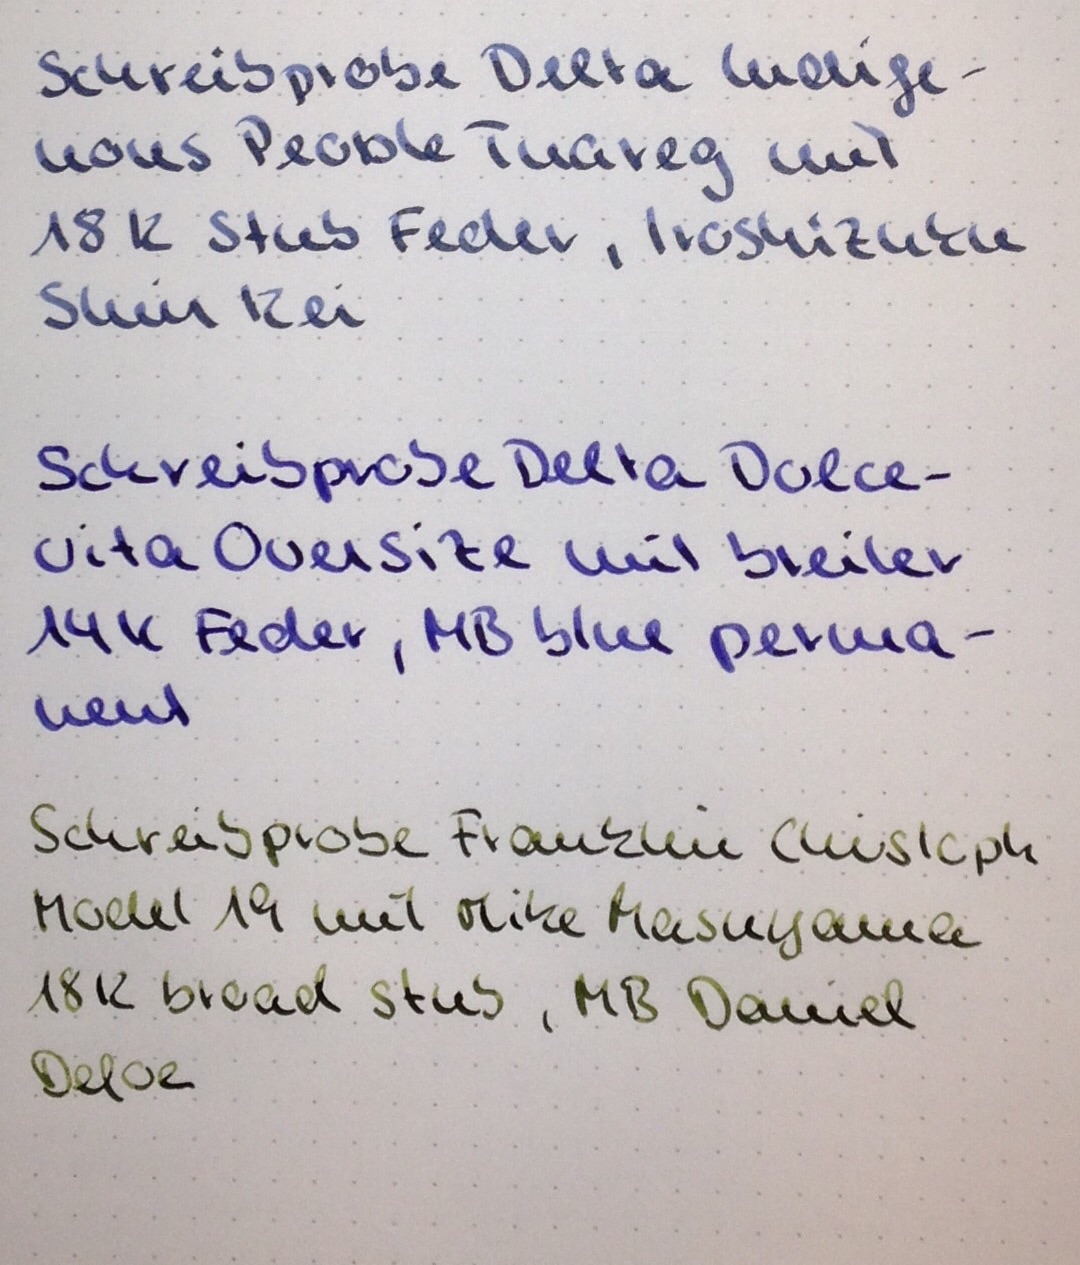 Schreibprobe Delta Indige-
nous People Tuareg mit
18K Stub Feder, Iroshizuku
Shin Kei
Schreibprobe Delta Dolce-
vita Oversize mit breiter
14K Feder, MB blue perma-
nent
Schreibprobe Franklin Christoph
Model 19 mit Mike Masuyama
18K broad stub, MB Daniel
Defoe